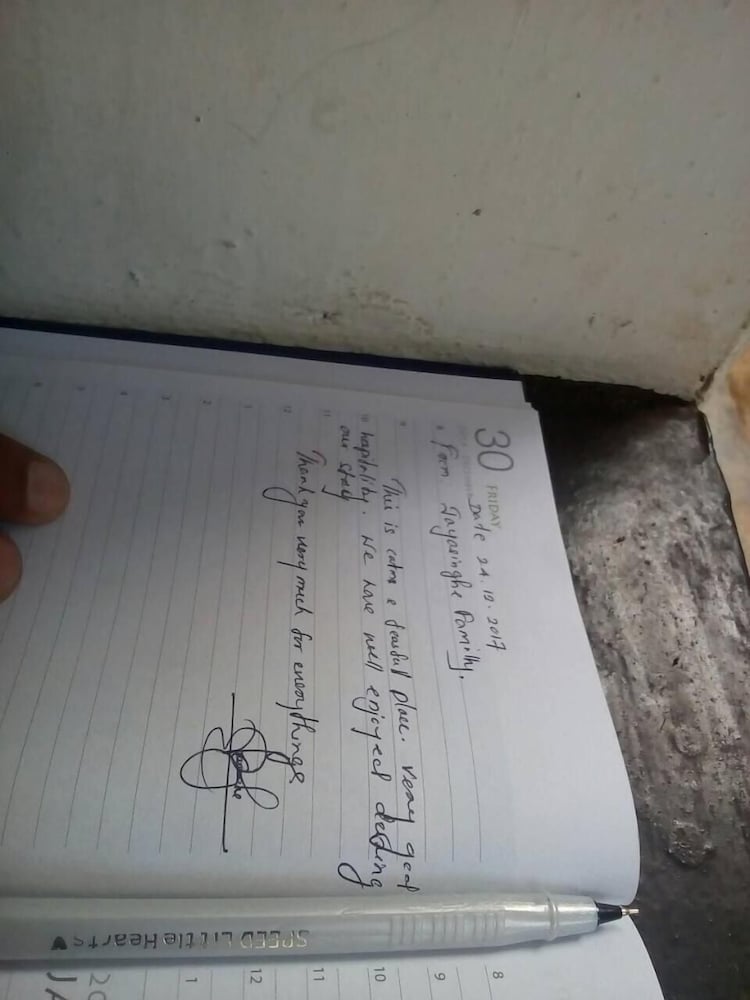 30 FRIDAY
Date 24.12.2017
From Jayasinghe Family,
This is calm & beautiful place. very good
hapitality. We have well enjoyed during
our stay
Thank you very much for everythings
9
10
11
12
1
2
3
4
5
6
SPEED LittleHearts
8
9
10
11
12
1
20
JA